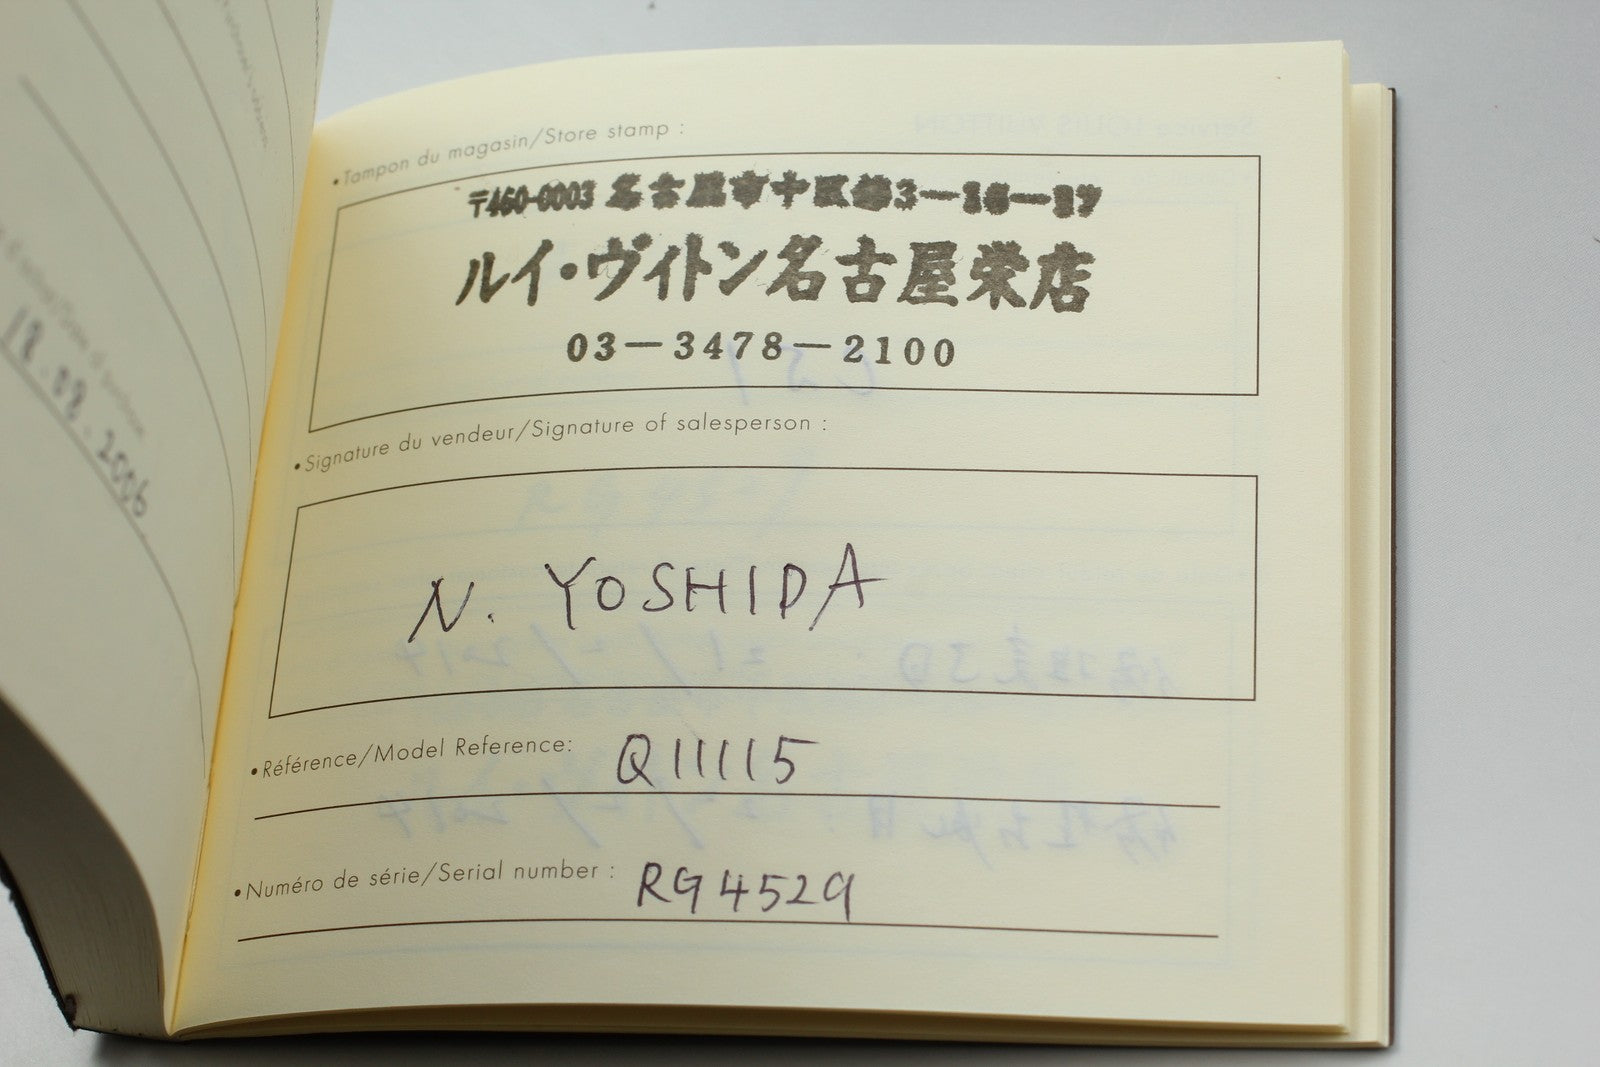 18.08.2006
•Tampon du magasin/Store stamp :
〒460-0003 名古屋市中区錦3-16-17
ルイ・ヴィトン名古屋栄店
03-3478-2100
•Signature du vendeur/Signature of salesperson :
N. YOSHIDA
•Référence/Model Reference: Q11115
•Numéro de série/Serial number : RG4529